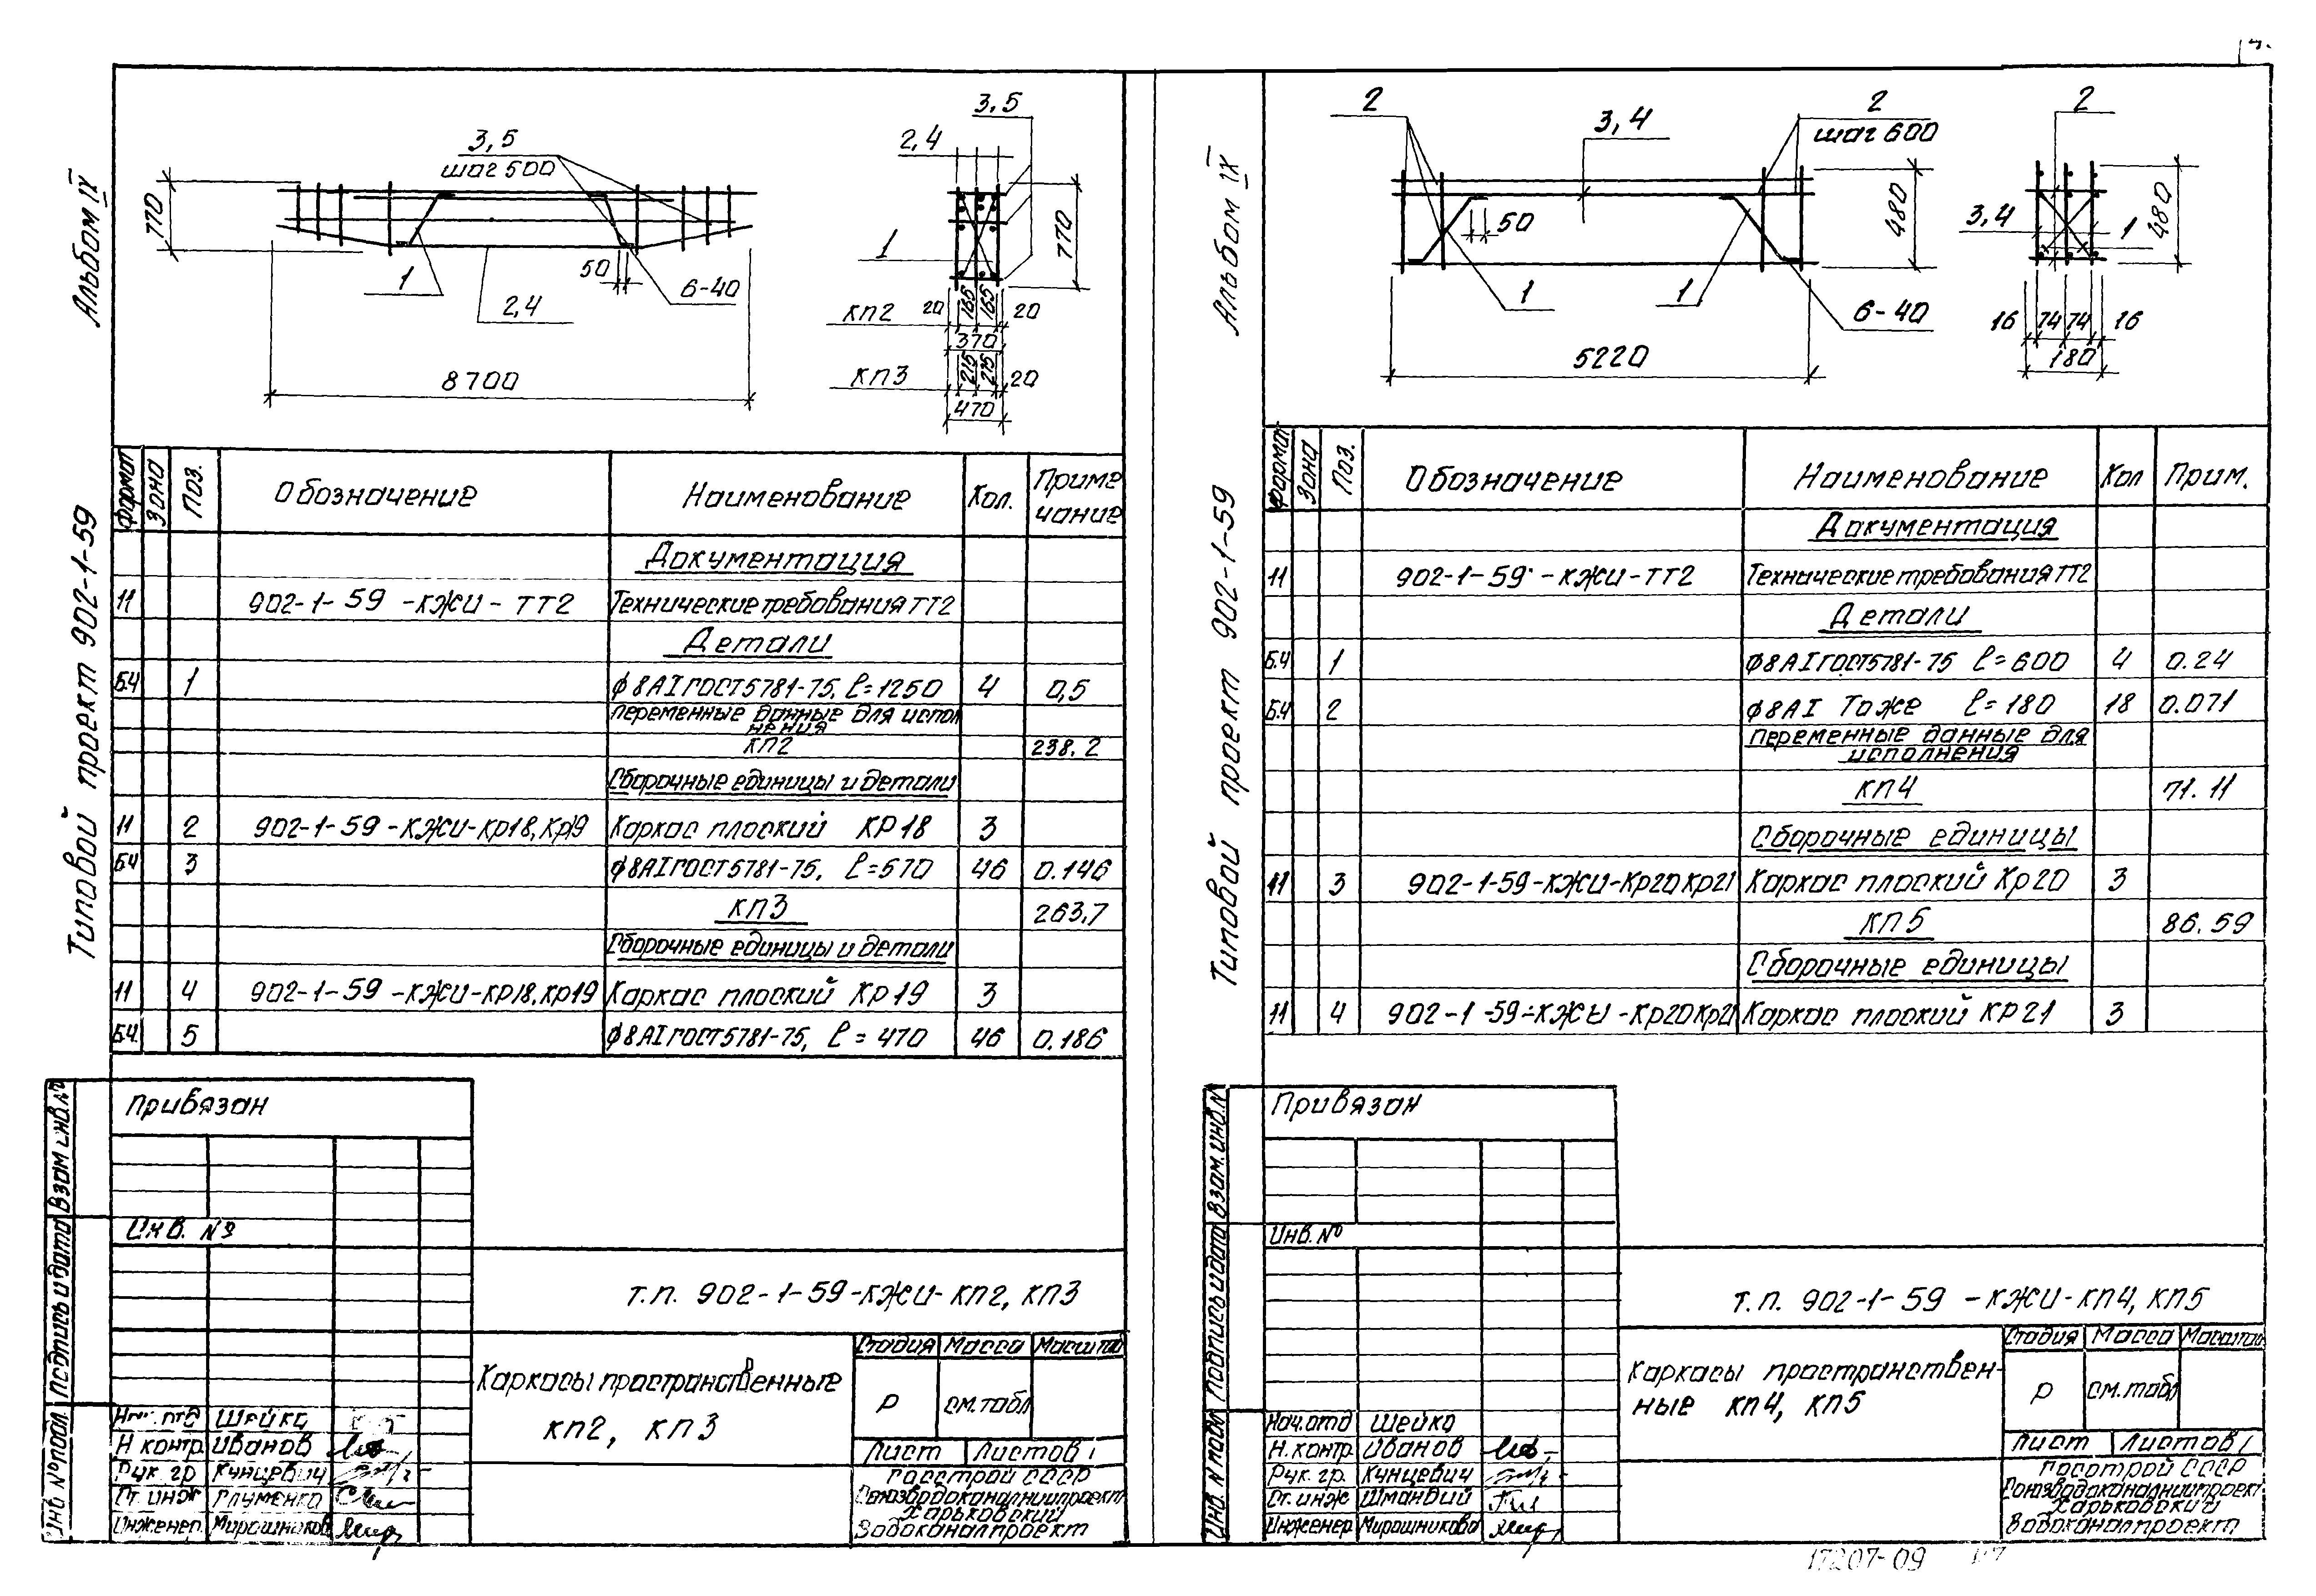 Альбом IX
Типовой проект 902-1-59
3,5
шаг 500
770
1
50
2,4
6-40
8700
3,5
2,4
770
1
КП2 20 165 165 20
370
КП3 215 215 20
470
Формат Зона Поз. Обозначение Наименование Кол. Приме
чание
Документация
11 902-1-59-КЖИ-ТТ2 Технические требования ТТ2
Детали
Б.Ч 1 ф8АI ГОСТ5781-75, ℓ=1250 4 0,5
Переменные данные для испол
нения
КП2 238.2
Сборочные единицы и детали
11 2 902-1-59-КЖИ-КР18,КР19 Каркас плоский КР18 3
Б.Ч 3 ф8АI ГОСТ5781-75, ℓ=570 46 0.146
КП3 263,7
Сборочные единицы и детали
11 4 902-1-59-КЖИ-КР18,КР19 Каркас плоский КР19 3
Б.Ч. 5 ф8АI ГОСТ5781-75, ℓ=470 46 0.186
Привязан
Инв. №
Взам инв.№
Подпись и дата
Инв № подл.
т.п. 902-1-59-КЖИ-КП2, КП3
Каркасы пространственные
КП2, КП3
Стадия Масса Масштаб
Р см.табл
Лист Листов 1
Госстрой СССР
Союзводоканалниипроект
Харьковский
Водоканалпроект
Нач. отд Шейко
Н контр Иванов
Рук. гр Кунцевич
Ст. инж Глуменко
Инженер. Мирошников
Альбом IX
Типовой проект 902-1-59
2
3,4
2
шаг 600
50
480
1
1
6-40
5220
2
3,4
1
480
16 74 74 16
180
Формат Зона Поз. Обозначение Наименование Кол Прим.
Документация
11 902-1-59-КЖИ-ТТ2 Технические требования ТТ2
Детали
Б.Ч 1 ф8АI ГОСТ5781-75 ℓ=600 4 0.24
Б.Ч 2 ф8АI То же ℓ=180 18 0.071
Переменные данные для
исполнения
КП4 71.11
Сборочные единицы
11 3 902-1-59-КЖИ-КР20 КР21 Каркас плоский КР20 3
КП5 86.59
Сборочные единицы
11 4 902-1-59-КЖИ-КР20 КР21 Каркас плоский КР21 3
Привязан
Инв. №
Взам. инв.№
Подпись и дата
Инв. № подл.
т.п. 902-1-59-КЖИ-КП4, КП5
Каркасы пространствен-
ные КП4, КП5
Стадия Масса Масштаб
Р см.табл
Лист Листов 1
Госстрой СССР
Союзводоканалниипроект
Харьковский
Водоканалпроект
Нач. отд Шейко
Н. контр Иванов
Рук. гр. Кунцевич
Ст. инж Шмандий
Инженер Мирошникова
17207-09